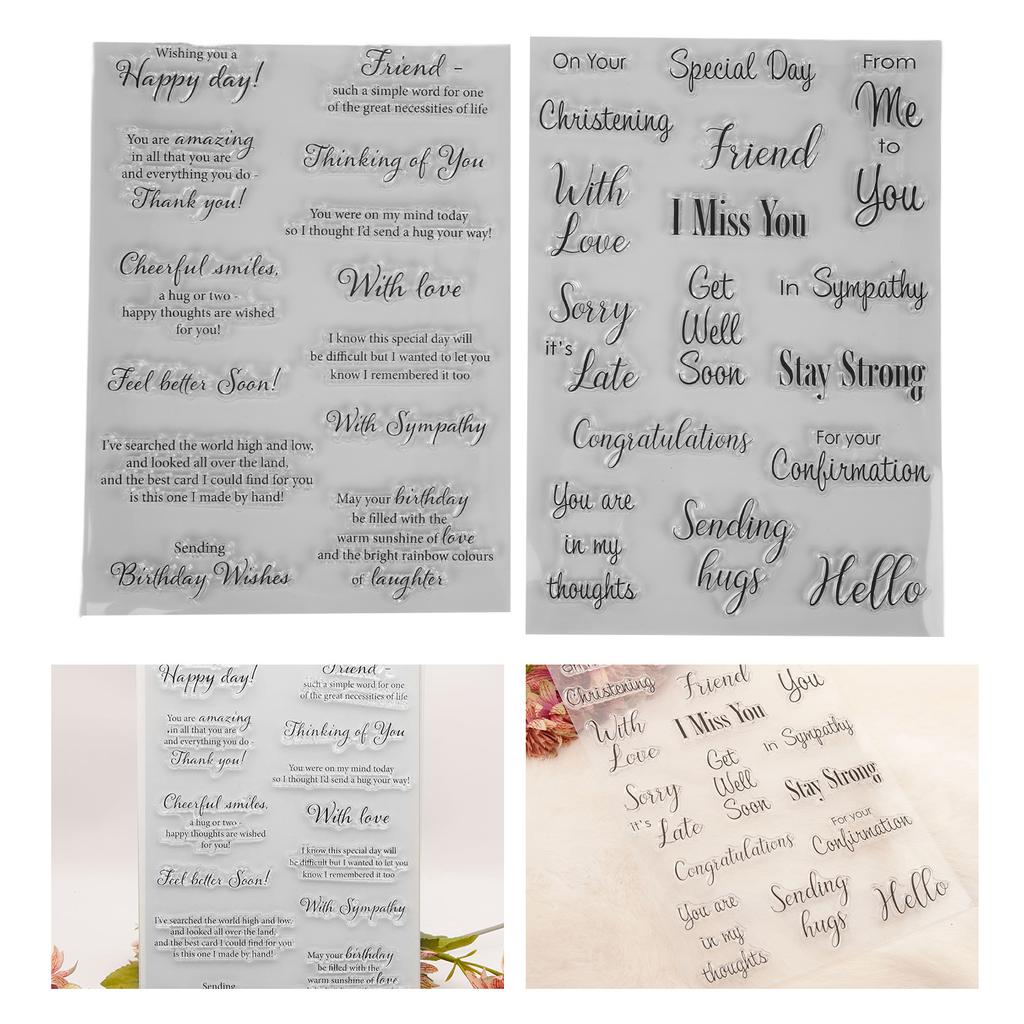 Wishing you a
Happy day!
You are amazing
in all that you are
and everything you do -
Thank you!
Cheerful smiles,
a hug or two -
happy thoughts are wished
for you!
Feel better Soon!
I've searched the world high and low,
and looked all over the land,
and the best card I could find for you
is this one I made by hand!
Sending
Birthday Wishes
Friend -
such a simple word for one
of the great necessities of life
Thinking of You
You were on my mind today
so I thought I'd send a hug your way!
With love
I know this special day will
be difficult but I wanted to let you
know I remembered it too
With Sympathy
May your birthday
be filled with the
warm sunshine of love
and the bright rainbow colours
of laughter
On Your
Special Day
From
Me
to
You
Christening
Friend
With
Love
I Miss You
Sorry
it's
Late
Get
Well
Soon
in Sympathy
Stay Strong
Congratulations
For your
Confirmation
You are
in my
thoughts
Sending
hugs
Hello
Happy day!
You are amazing
in all that you are
and everything you do -
Thank you!
Cheerful smiles,
a hug or two -
happy thoughts are wished
for you!
Feel better Soon!
I've searched the world high and low,
and looked all over the land,
and the best card I could find for you
is this one I made by hand!
Sending
Friend -
such a simple word for one
of the great necessities of life
Thinking of You
You were on my mind today
so I thought I'd send a hug your way!
With love
I know this special day will
be difficult but I wanted to let you
know I remembered it too
With Sympathy
May your birthday
be filled with the
warm sunshine of love
Christening
Friend
You
With
Love
I Miss You
Sorry
it's
Late
Get
Well
Soon
in Sympathy
Stay Strong
Congratulations
For your
Confirmation
You are
in my
thoughts
Sending
hugs
Hello